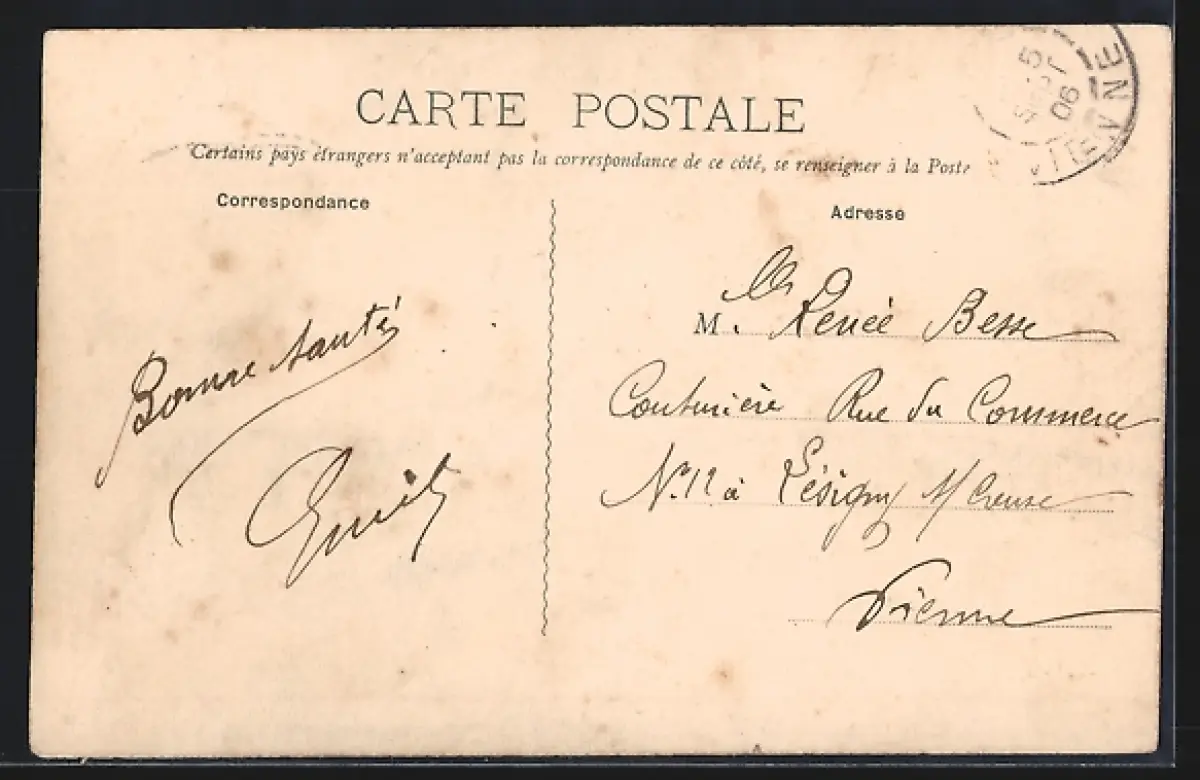 CARTE POSTALE
Certains pays étrangers n'acceptant pas la correspondance de ce côté, se renseigner à la Poste
Correspondance
Adresse
Bonne santé
M. lle Renée Besse
Couturière Rue du Commerce
N° 12 à Lésigny s/ Creuse
Vienne
5
06
VIENNE